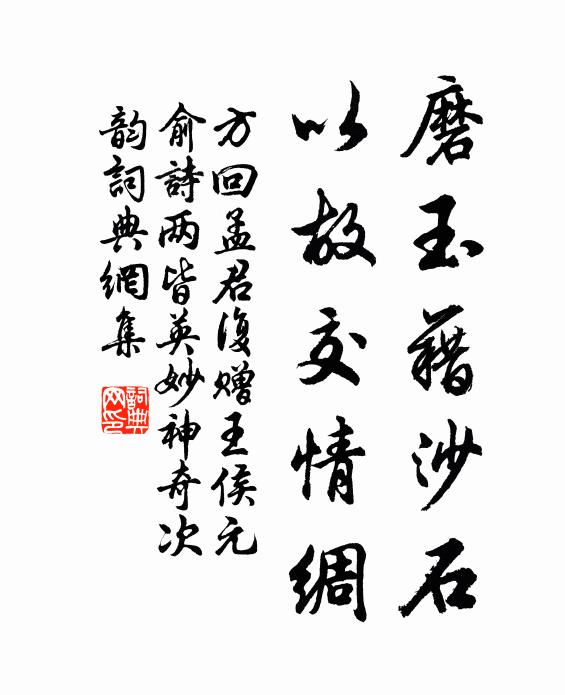 磨玉藉沙石
以故交情綢
方回孟君復贈王侯元
俞詩两皆英妙神奇次
韵詞典網集
詞典
网印